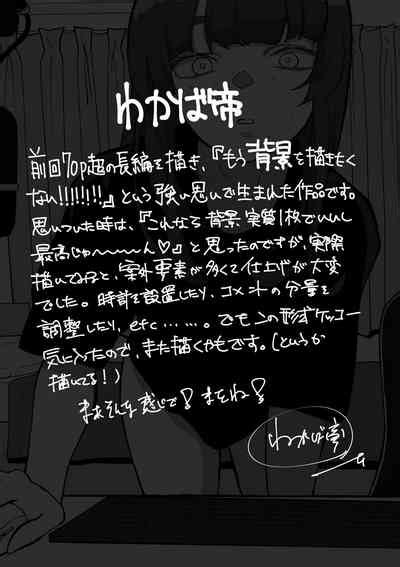 わかば帝
前回70p超の長編を描き、『もう背景を描きたく
ない!!!!!!!』という強い思いで生まれた作品です。
思いついた時は、『これなら背景実質1枚でいいし
最高じゃ〜〜〜ん♡』と思ったのですが、実際
描いてみると、案外要素が多くて仕上げが大変
でした。時計を設置したり、コメントの分量を
調整したり、etc……。でもこの形式ケッコー
気に入ったので、また描くやもです。(というか
描いてる!)
まぁそんな感じで! またね!
わかば